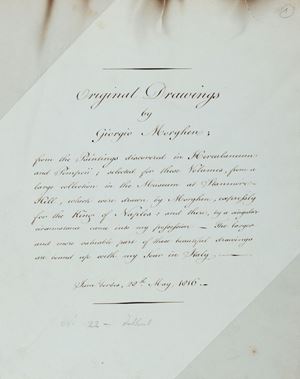 Original Drawings
by
Giorgio Morghen;
from the Paintings discovered in Herculaneum
and Pompeii; selected for these Volumes, from a
large collection in the Museum at Stanmore-
Hill, which were drawn by Morghen, expressly
for the King of Naples; and these, by a singular
circumstance came into my possession — The larger
and more valuable part of these beautiful drawings
are bound up with my tour in Italy.
20th May, 1816 —
22 —